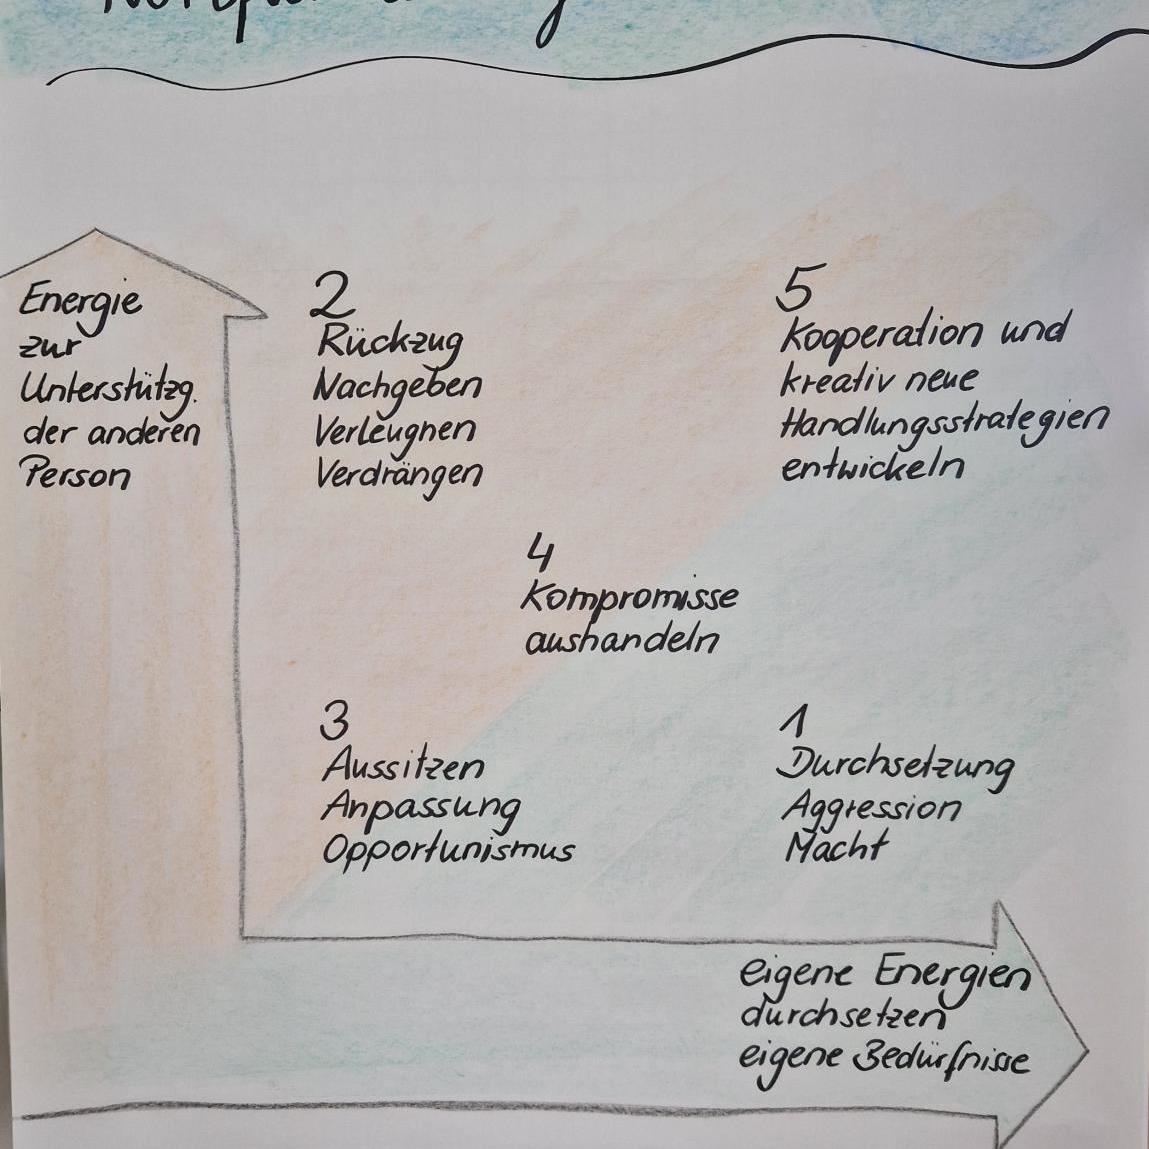 Energie
zur
Unterstützg.
der anderen
Person
2
Rückzug
Nachgeben
Verleugnen
Verdrängen
5
Kooperation und
kreativ neue
Handlungsstrategien
entwickeln
4
Kompromisse
aushandeln
3
Aussitzen
Anpassung
Opportunismus
1
Durchsetzung
Aggression
Macht
eigene Energien
durchsetzen
eigene Bedürfnisse